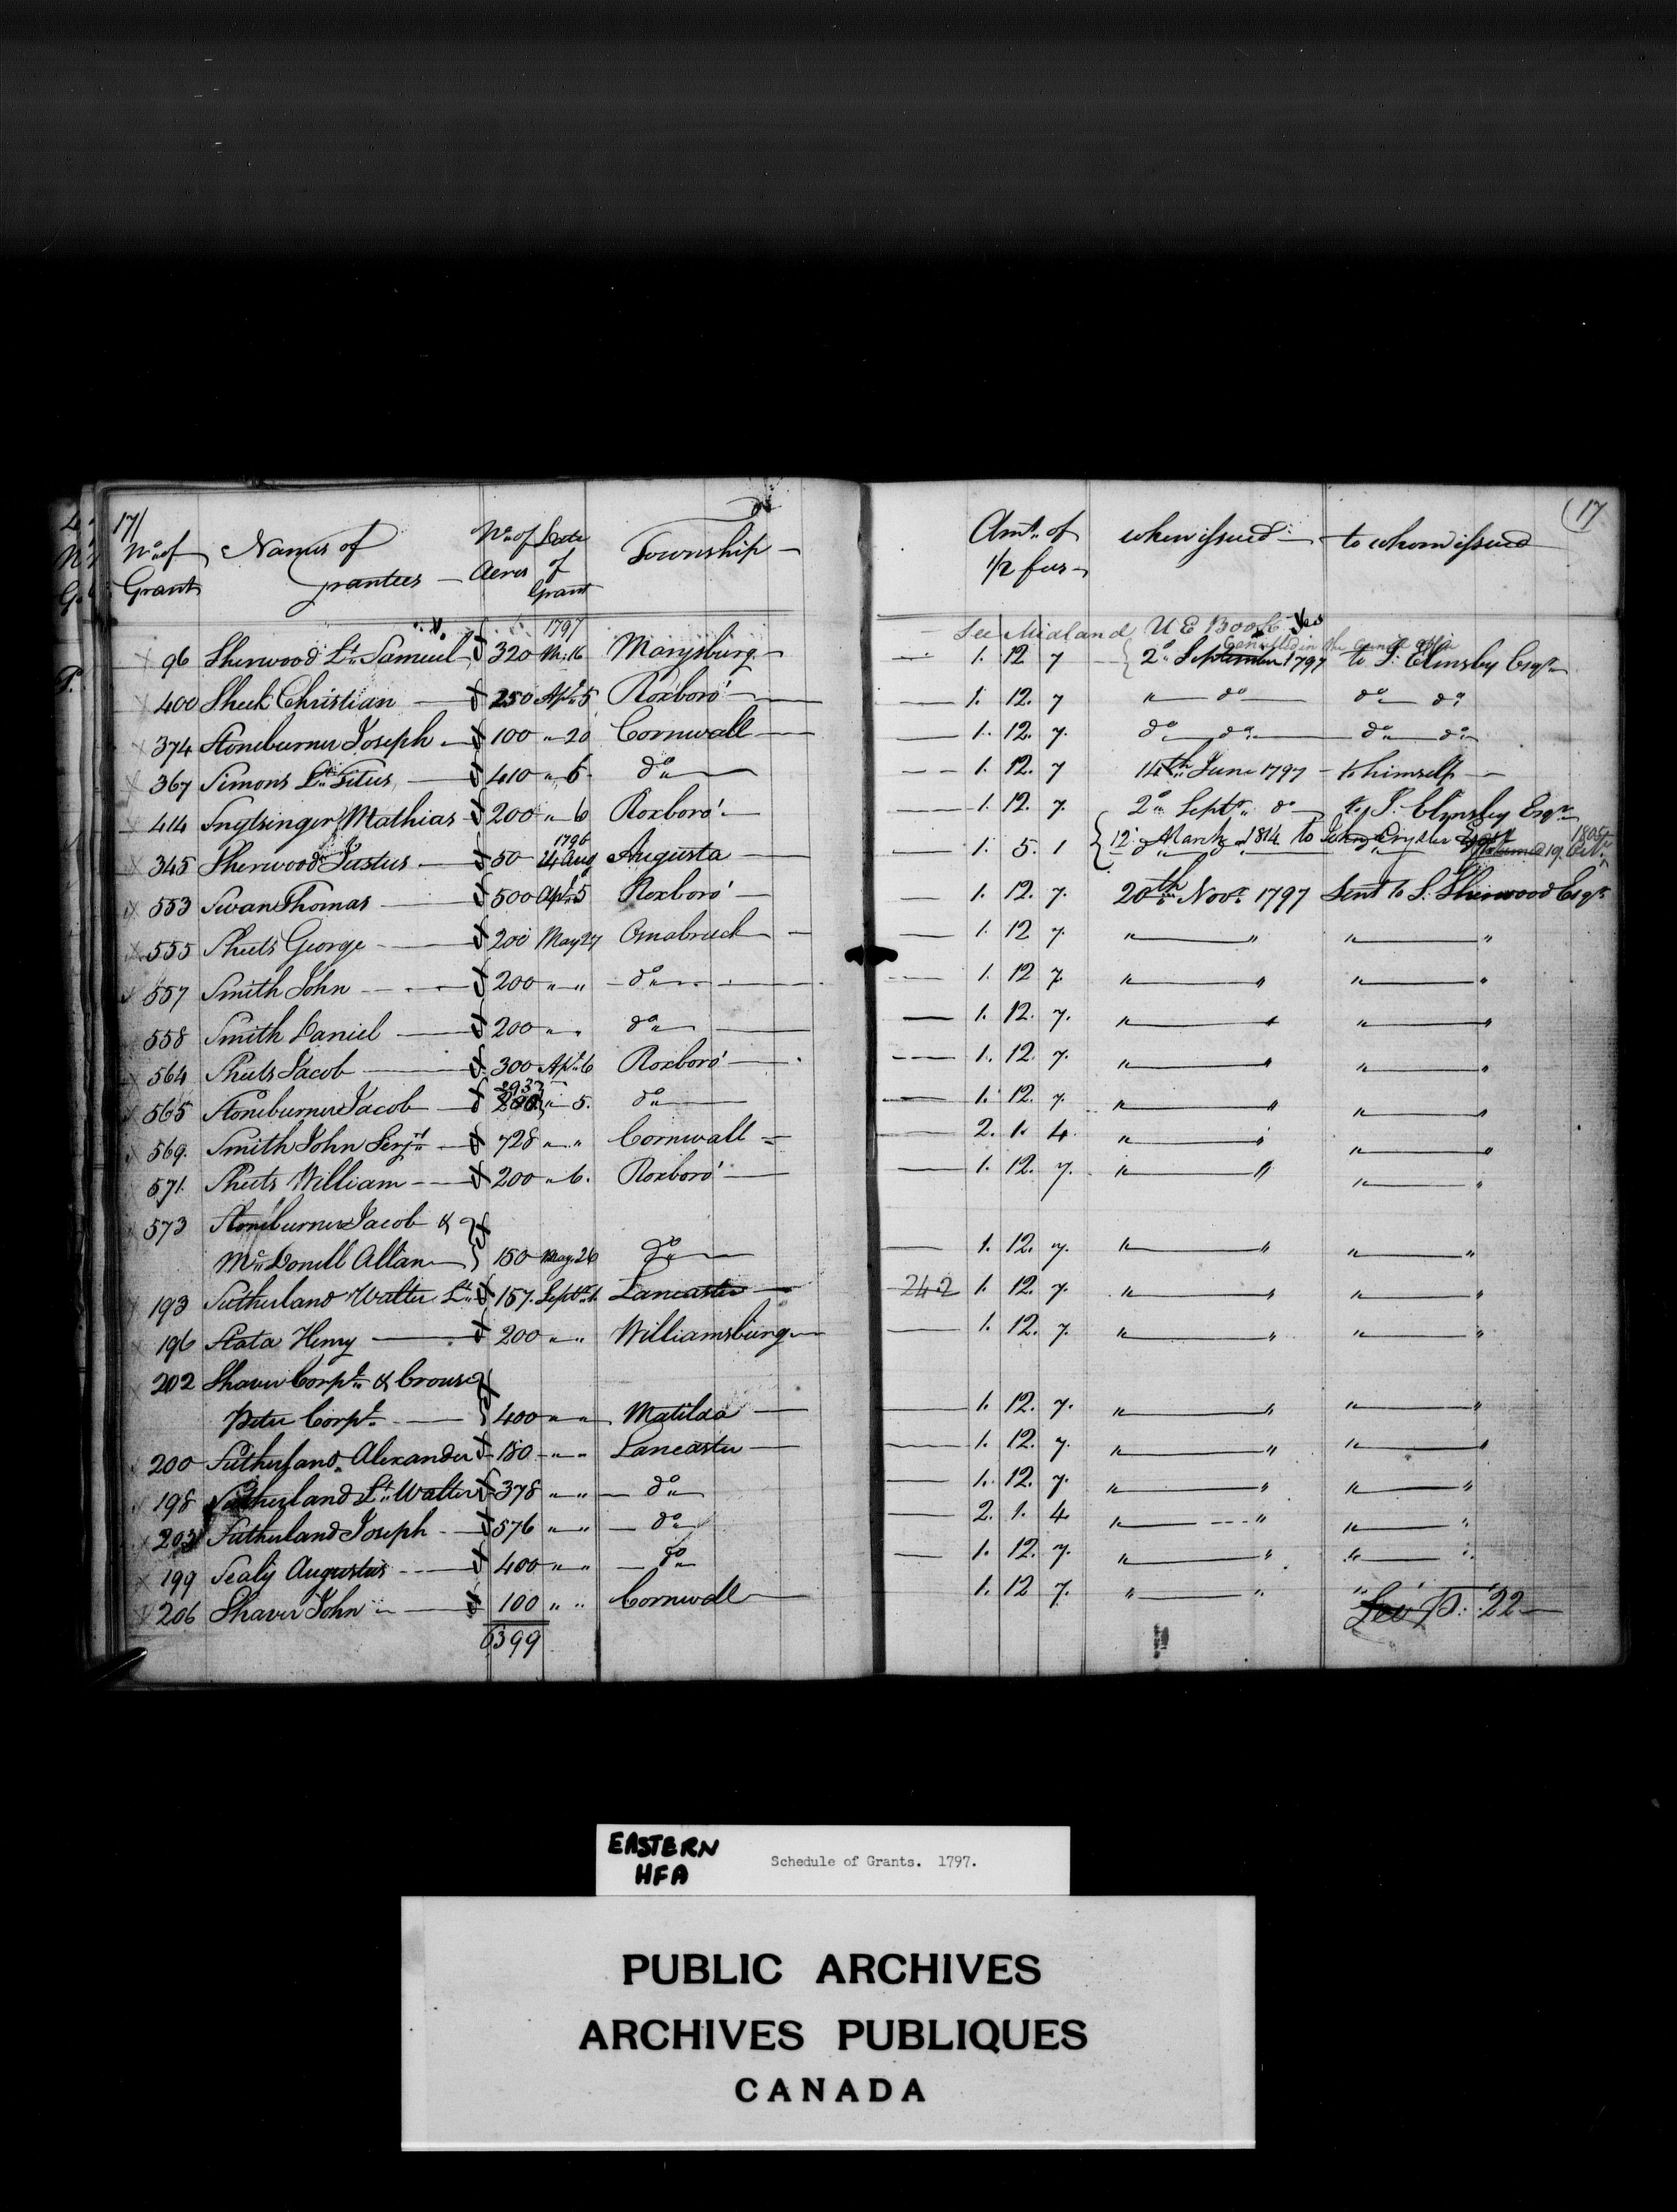 17/ (17
No. of Names of No. of Date Township Amt. of when issued to whom issued
Grant grantees Acres of 1/2 fees
Grant
1797 See Midland U E Book Yes
96 Sherwood Lt. Samuel 320 16 Marysburg 1. 12 7 2d. September 1797 to J. Elmsley Esqr.
400 Sheek Christian 250 Apl. 5 Roxboro' 1. 12. 7 " do do do
374 Stoneburner Joseph 100 " 20 Cornwall 1. 12. 7. do do do do
367 Simons Lt. Titus 410 " 6 do 1. 12. 7 14th June 1797 to himself
414 Snytsinger Mathias 200 " 6 Roxboro' 1. 12. 7. 2d. Septr. do to J. Elmsley Esqr.
1796 12 March 1814 to John Crysler Esqr. 1808
345 Sherwood Justus 50 24 Aug Augusta 1. 5. 1 returned 19. Octr.
553 Swan Thomas 500 Apl. 5 Roxboro' 1. 12. 7. 20th Novr. 1797 Sent to S. Sherwood Esqr.
555 Sheets George 200 May 27 Osnabruck 1. 12 7. " " " "
557 Smith John 200 " " do 1. 12 7. " " " "
558 Smith Daniel 200 " " do 1. 12. 7. " " " "
564 Sheets Jacob 300 Apl. 6 Roxboro' 1. 12. 7. " " " "
565 Stoneburner Jacob 200 " 5. do 1. 12. 7. " " " "
569. Smith John Serjt. 728 " " Cornwall 2. 1. 4. " " " "
571. Sheets William 200 " 6. Roxboro' 1. 12. 7. " " " "
573 Stoneburner Jacob &
McDonell Allan 150 May 26 do 1. 12. 7. " " " "
193 Sutherland Walter Lt. 157. Septr. 1. Lancaster 242 1. 12. 7. " " " "
196 Stata Henry 200 " " Williamsburg 1. 12. 7. " " " "
202 Shaver Corpl. & Crouse
Peter Corpl. 400 " " Matilda 1. 12. 7. " " " "
200 Sutherland Alexander 150 " " Lancaster 1. 12. 7. " " " "
198 Sutherland Lt. Walter 378 " " do 1. 12. 7. " " " "
203 Sutherland Joseph 576 " " do 2. 1. 4 " " " "
199 Sealy Augustus 400 " " do 1. 12. 7. " " " "
206 Shaver John 100 " " Cornwall 1. 12 7. " " " "
6399 See P. 22
EASTERN
HFA
Schedule of Grants. 1797.
PUBLIC ARCHIVES
ARCHIVES PUBLIQUES
CANADA